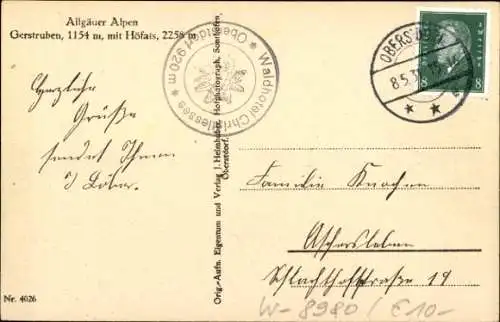 Allgäuer Alpen
Gerstruben, 1154 m, mit Höfats, 2258 m
Herzliche
Grüße
sendet Ihnen
Waldhotel Christlessee * Oberstdorf 920 m *
Orig.-Aufn. Eigentum und Verlag J. Heimhuber, Hofphotograph, Sonthofen,
Oberstdorf.
OBERSTDORF
8.5.3
8
Familie Knochen
Aschersleben
Schlachthofstraße 19
Nr. 4026
W-8980/€10-